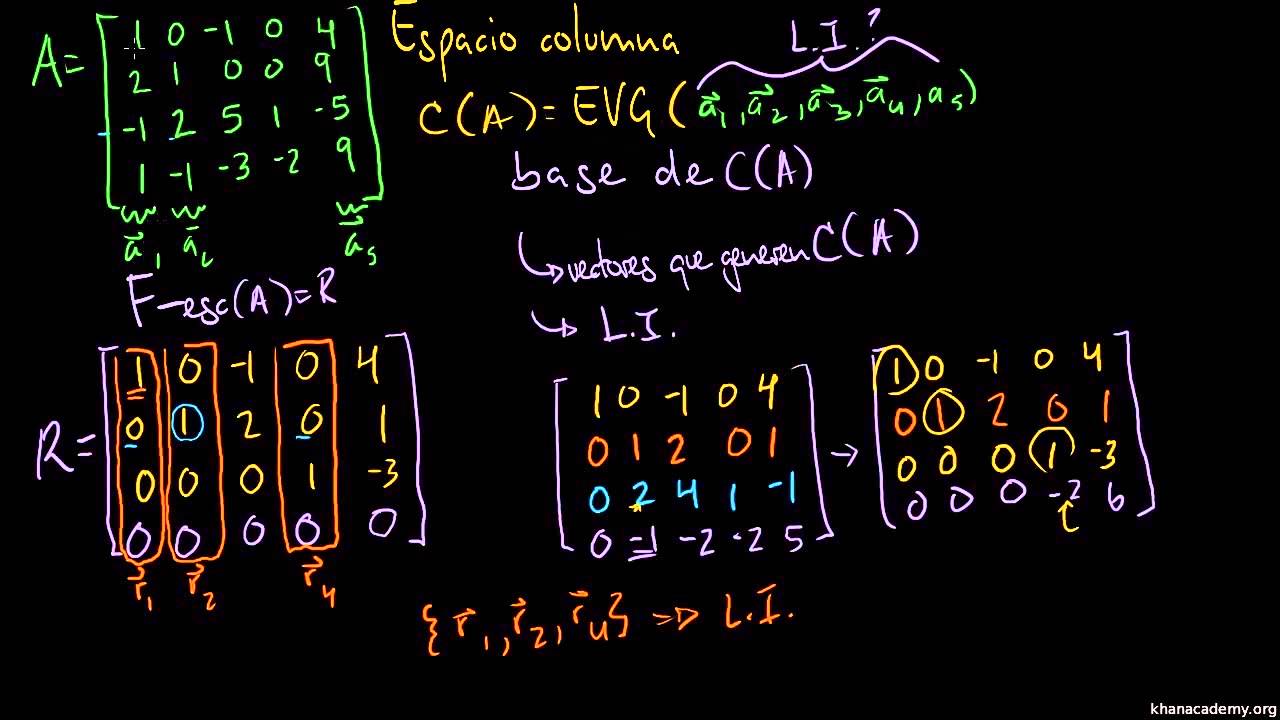 A = [ 1 0 -1 0 4
2 1 0 0 9
-1 2 5 1 -5
1 -1 -3 -2 9 ]
a⃗₁ a⃗₂ a⃗₅
F-esc(A)=R
Espacio columna
L.I.?
C(A) = EVG(a⃗₁, a⃗₂, a⃗₃, a⃗₄, a₅)
base de C(A)
↳ vectores que generen C(A)
↳ L.I.
R = [ 1 0 -1 0 4
0 1 2 0 1
0 0 0 1 -3
0 0 0 0 0 ]
r⃗₁ r⃗₂ r⃗₄
[ 1 0 -1 0 4
0 1 2 0 1
0 2 4 1 -1
0 -1 -2 -2 5 ]
→
[ 1 0 -1 0 4
0 1 2 0 1
0 0 0 1 -3
0 0 0 -2 6 ]
{r⃗₁, r⃗₂, r⃗₄} ⇒ L.I.
khanacademy.org